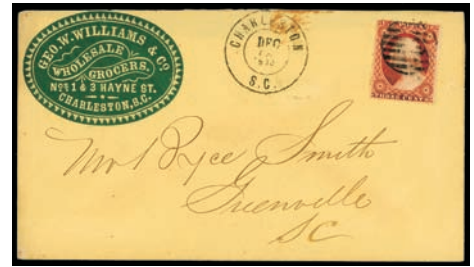 GEO. W. WILLIAMS & Co
WHOLESALE
GROCERS,
Nos 1 & 3 HAYNE ST.
CHARLESTON, S.C.
CHARLESTON
DEC
S.C.
THREE CENTS
Mr Smith
Greenville
SC